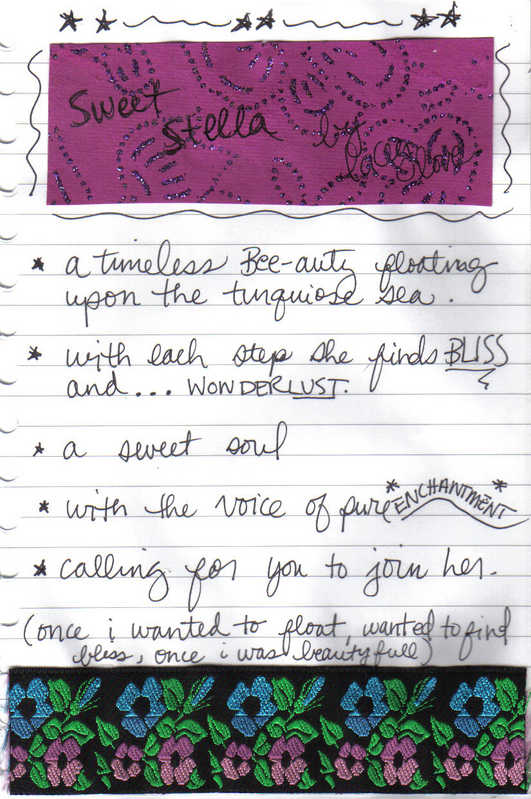 Sweet
Stella by
* a timeless Bee-auty floating
upon the turquiose sea.
* with each step she finds BLISS
and... WONDERLUST.
* a sweet soul
* with the voice of pure *ENCHANTMENT*
* calling for you to join her.
(once i wanted to float, wanted to find
bliss, once i was beautyfull)